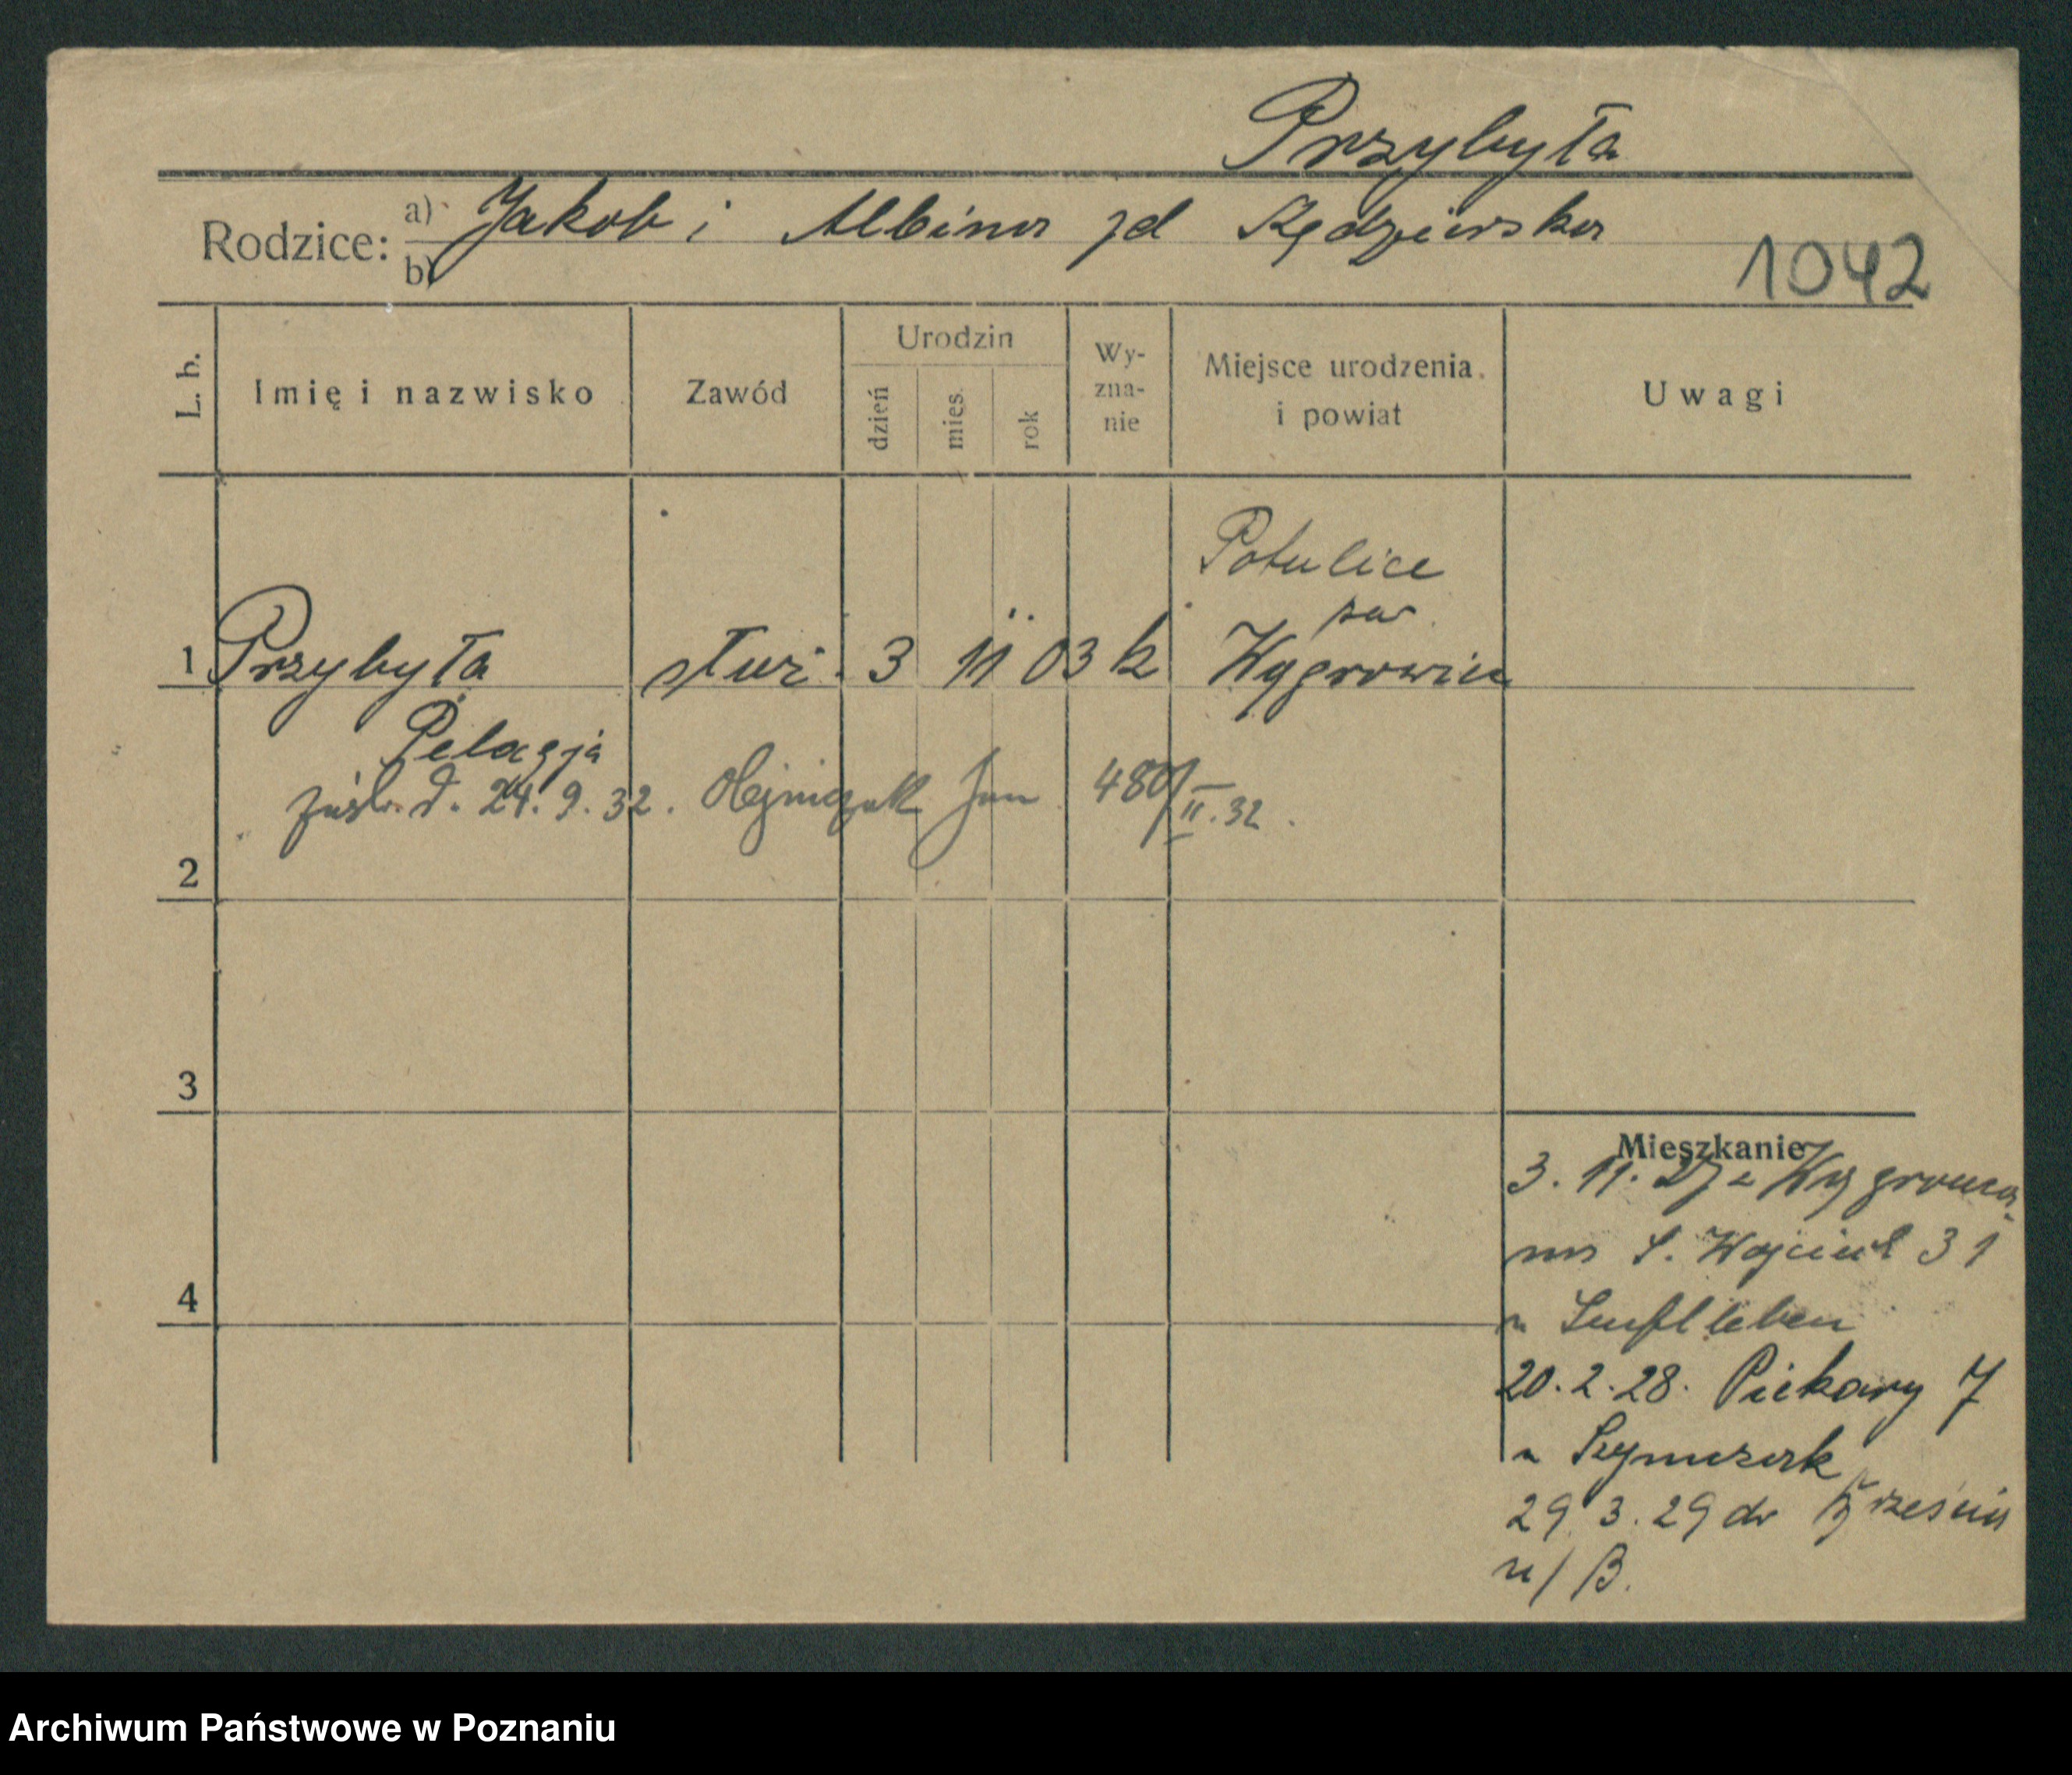 Przybyła
Rodzice: a) Jakob i Albina zd Kędzierska
b)
1042
L. b.
Imię i nazwisko
Zawód
Urodzin
dzień
mies.
rok
Wy-
zna-
nie
Miejsce urodzenia
i powiat
Uwagi
Potulice
pow
1 Przybyła służ. 3 11 03 k Wągrowiec
Pelagja
zaśl. d. 24.9.32. Olejniczak Jan 480/II.32.
2
3
4
Mieszkanie
3. 11. 27 z Wągrowca
na S. Wojciech 31
u Senftleben
20.2.28. Piekary 7
u Szymczak
29.3.29 do Września
n/B.
Archiwum Państwowe w Poznaniu